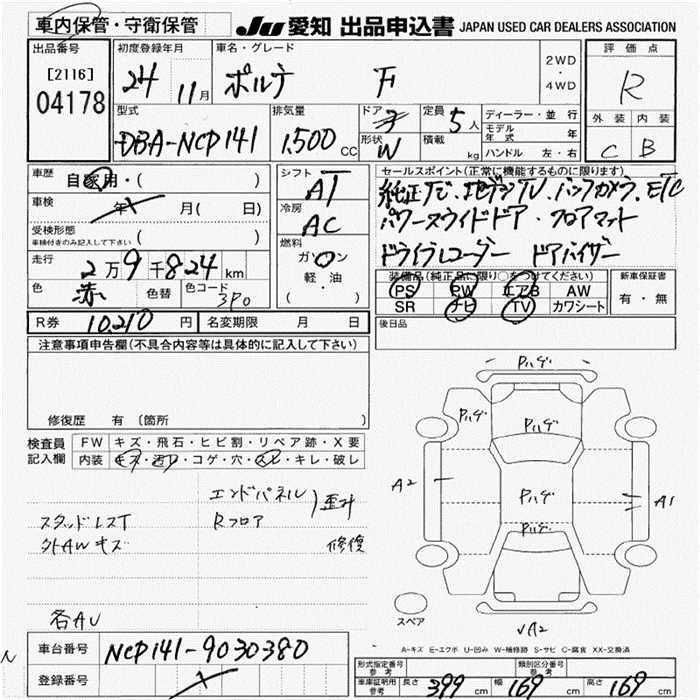 車内保管・守衛保管
JU 愛知 出品申込書 JAPAN USED CAR DEALERS ASSOCIATION
出品番号 初度登録年月 車名・グレード 評価点
[2116] 24 11月 ポルテ F 2WD・4WD R
04178
型式 排気量 ドア 定員 5人 ディーラー・並行 外装 内装
DBA-NCP141 1.500 CC 形状 W 積載 kg モデル年式 年 C B
ハンドル 左・右
車歴 自家用・( ) シフト AT セールスポイント(正常に機能するものに限ります)
車検 年 月( 日) 冷房 AC 純正ナビ.地デジTV.バックカメラ.ETC
受検形態 車検付きのみ記入して下さい ( ) パワースライドドア・フロアマット
燃料 ガソリン 軽・油 ( ・ ) ドライブレコーダー ドアバイザー
走行 2万9千824km 装備品(純正品に限り○をつけてください) 新車保証書
色 赤 色替 色コード 3P0 PS PW エアB AW 有・無
SR ナビ TV カワシート
R券 10.210 円 名変期限 月 日 後日品
注意事項申告欄(不具合内容等は具体的に記入して下さい)
修復歴 有 〔箇所 〕
検査員記入欄 FW キズ・飛石・ヒビ割・リペア跡・X要
内装 キズ・汚レ・コゲ・穴・スレ・キレ・破レ
エンドパネル 歪み
スタッドレスT Rフロア
外AWキズ 修復
各AU
Pハゲ
Pハゲ Pハゲ
A2 Pハゲ A1
Pハゲ
スペア √A2
A-キズ E-エクボ U-凹み W-補修跡 S-サビ C-腐食 XX-交換済
車台番号 NCP141-9030380
登録番号
形式指定番号 参考 類別区分番号 参考
車庫証明用 参考 長さ 399 cm 幅 169 cm 高さ 169 cm